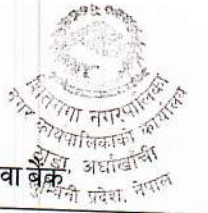 शितगंगा नगरपालिका
नगर कार्यपालिकाको कार्यालय
ठाडा, अर्घाखाँची
लुम्बिनी प्रदेश, नेपाल
वा बैंक